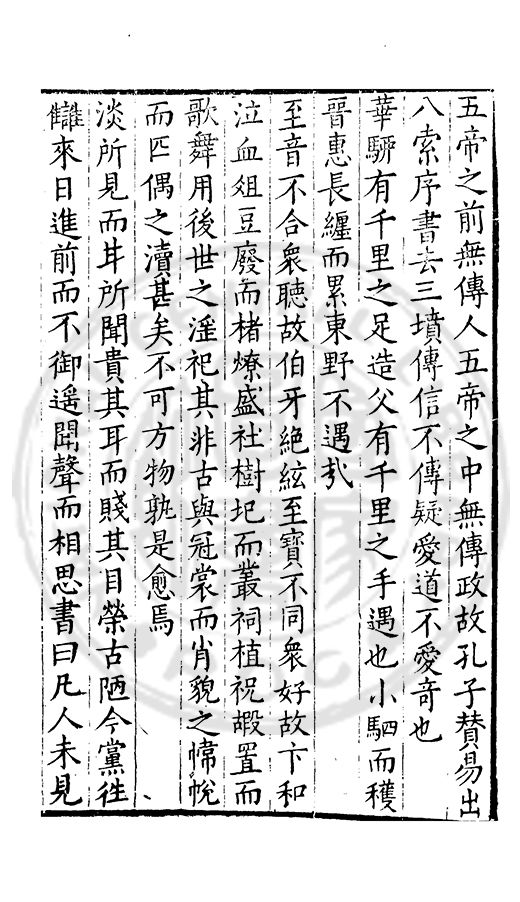 五帝之前無傳人五帝之中無傳政故孔子賛易出
八索序書去三墳傳信不傳疑愛道不愛竒也
華騮有千里之足造父有千里之手遇也小駟而穫
晉惠長纆而累東野不遇㢤
至音不合衆聽故伯牙絶絃至寶不同衆好故卞和
泣血俎豆廢而楮燎盛社樹圮而叢祠植祝嘏置而
歌舞用後世之滛祀其非古與冠裳而肖貌之幃帨
而匹偶之瀆甚矣不可方物孰是愈焉
淡所見而甘所聞貴其耳而賤其目榮古陋今黨徃
讎來日進前而不御遥聞聲而相思書曰凡人未見